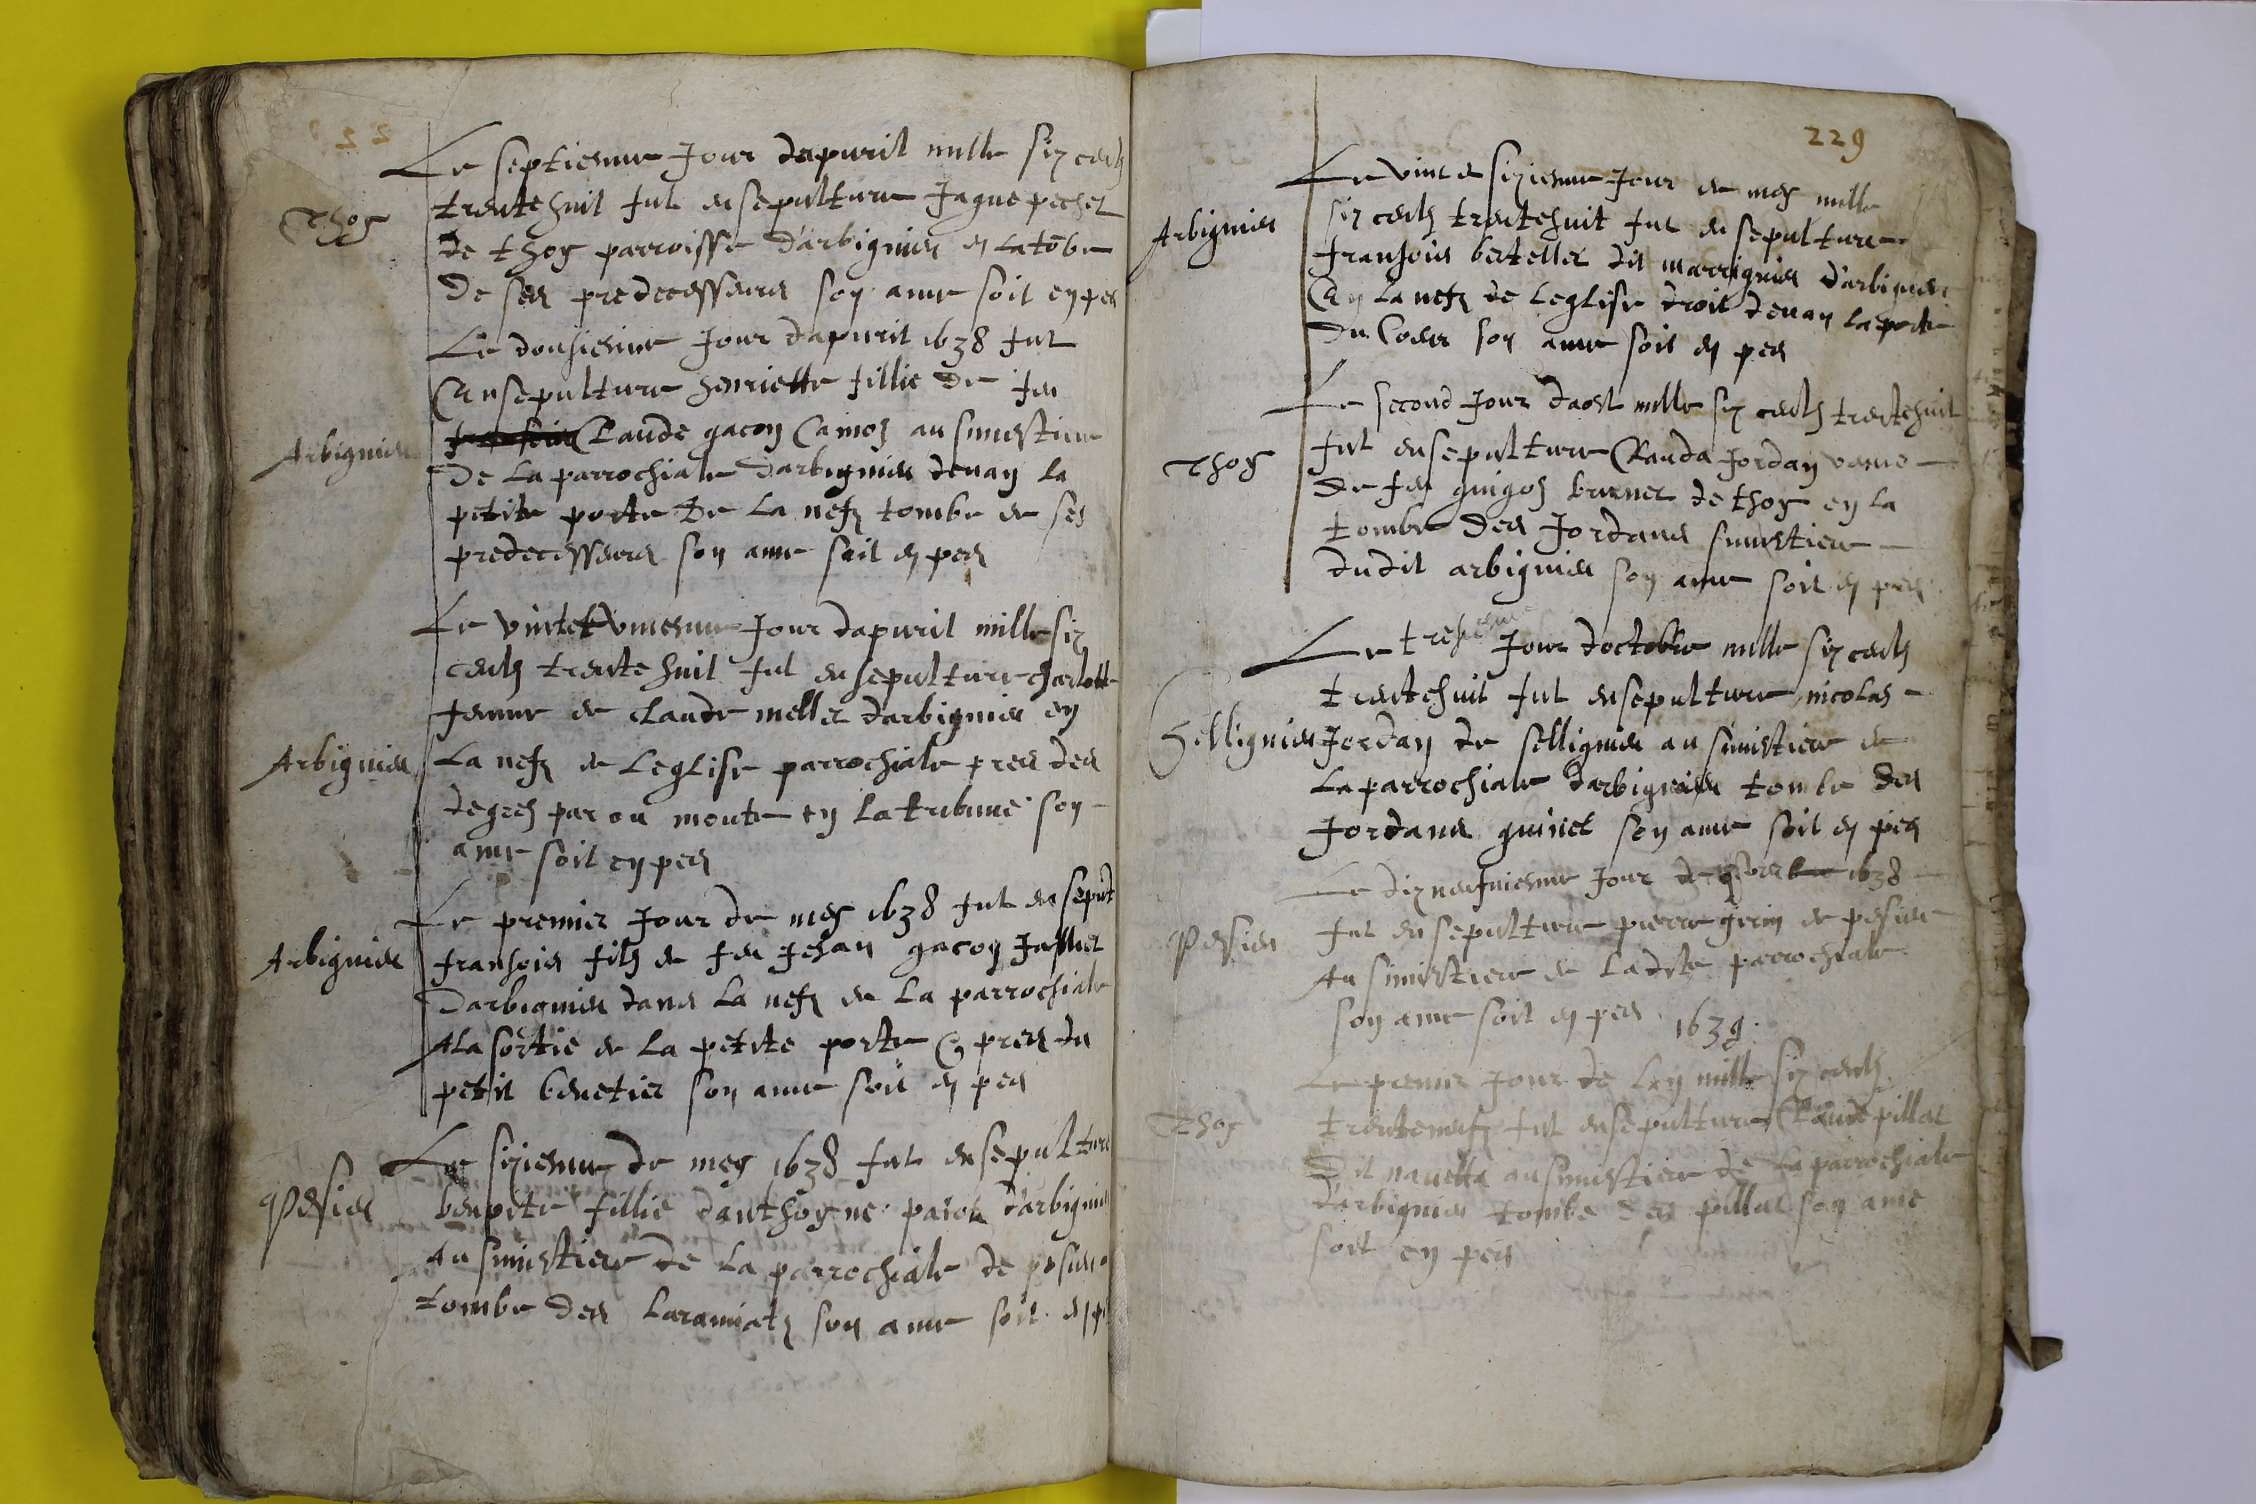 Le septiesme Jour dapuril mille six cents
Thoy
trente huit fut ensepulture Jaque pechet
de thoy parroisse d'arbignieu en la tōbe
de ses predecesseurs son ame soit en pes
Le dousiesme Jour dapuril 1638 fut
Ensepulture henriette fillie de feu
Arbignieu
Claude gacon Camoz au simistiere
de la parrochiale darbignieu devan la
petite porte de la nefz tombe de ses
predecesseurs son ame soit en pes
Le vintet vniesme Jour dapuril mille six
cents trente huit fut ensepulture charlotte
femme de claude mellet darbignieu en
Arbignieu
la nefz de leglise parrochiale pres des
degrez par ou monte en la tribune son
ame soit en pes
Le premier Jour de mey 1638 fut ensepult
Arbignieu
fransois filz de feu Jehan gacon
Darbignieu dans la nefz de la parrochiale
A la sortie de la petite porte Et pres du
petit benetier son ame soit en pes
Le siziesme de mey 1638 fut ensepulture
Pesieu
benoite fillie danthoyne d'arbignieu
au simistiere de la parrochiale de pesieu
tombe des son ame soit en pes
229
Le vint e siziesme Jour de mey mille
Arbignieu
six cents trentehuit fut ensepulture
fransois bertellet dit marrignieu d'arbignieu
En la nefz de leglise droit devan la porte
du Coeur son ame soit en pes
Le second Jour daost mille six cents trentehuit
Thoy
fut ensepulture Clauda Jordan
de feu guigoz burnet de thoy en la
tombe des Jordans simistiere
dudit arbignieu son ame soit en pes
Le tresiesme Jour doctobre mille six cents
trentehuit fut ensepulture nicolas
Sellignieu
Jordan de sellignieu au simistiere de
la parrochiale darbignieu tombe des
Jordans guinet son ame soit en pes
Le diz neufuiesme Jour de 1638
Pesieu
fut ensepulture pierre de pesieu
Au simistiere de ladite parrochiale
son ame soit en pes
1639
Le premier Jour de mille six cents
Thoy
trenteneufz fut ensepulture Claude pillat
Dit nauetta au simistiere de la parrochiale
d'arbignieu tombe des pillas son ame
soit en pes